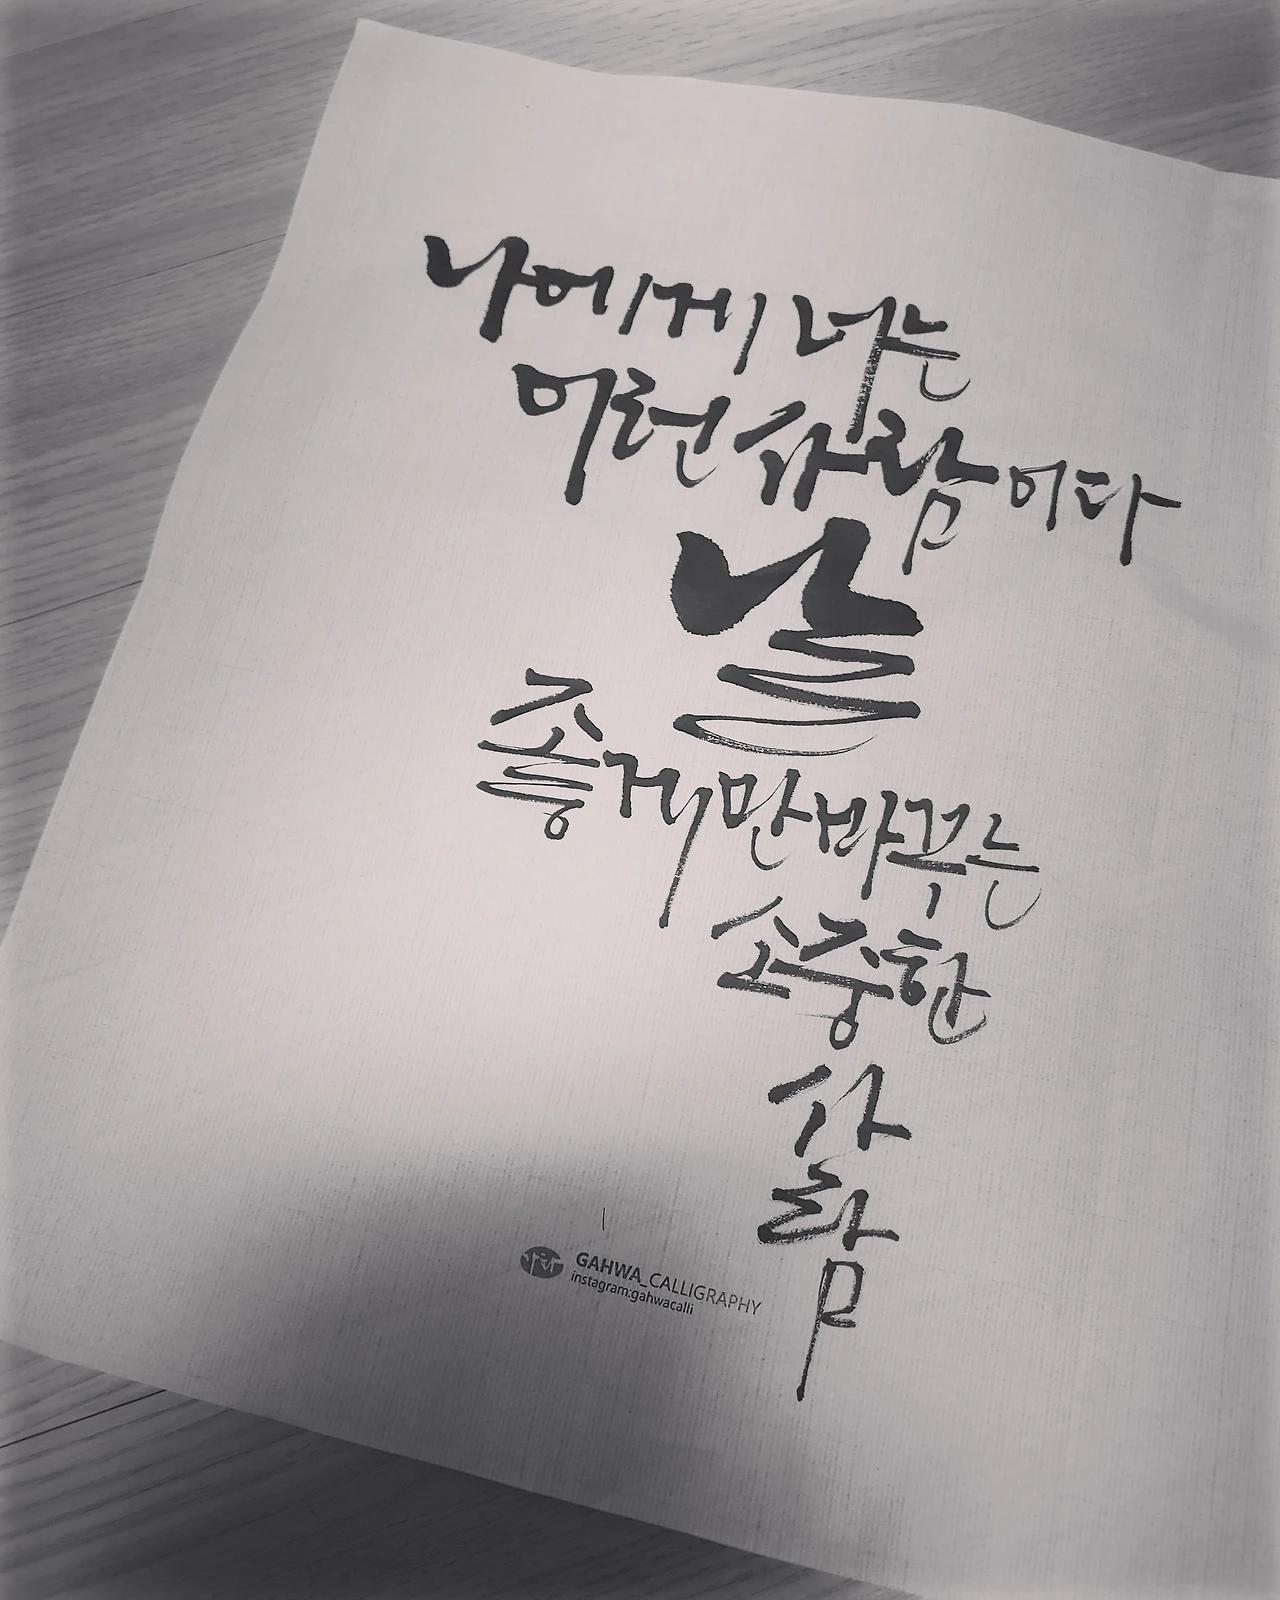 나에게 너는
이런 사람이다
날
좋게만 바꾸는
소중한
사
람
가화
GAHWA_CALLIGRAPHY
instagram:gahwacalli